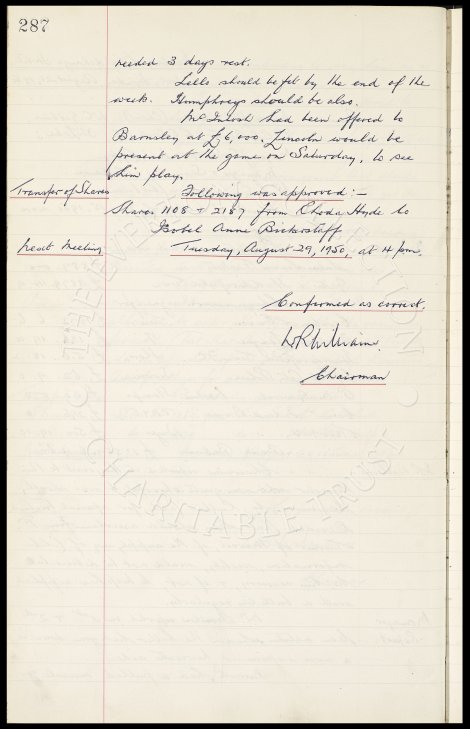 287
needed 3 days rest.
Lello should be fit by the end of the
week. Humphreys should be also.
McIntosh had been offered to
Barnsley at £6,000. Lincoln would be
present at the game on Saturday, to see
him play.
Transfer of Shares Following was approved :-
Shares 1108 & 2187 from Rhoda Hyde to
Isobel Anne Bickerstaff
Next Meeting Tuesday, August 29, 1950, at 4 pm.
Confirmed as correct.
Chairman
THE EVERTON COLLECTION
CHARITABLE TRUST